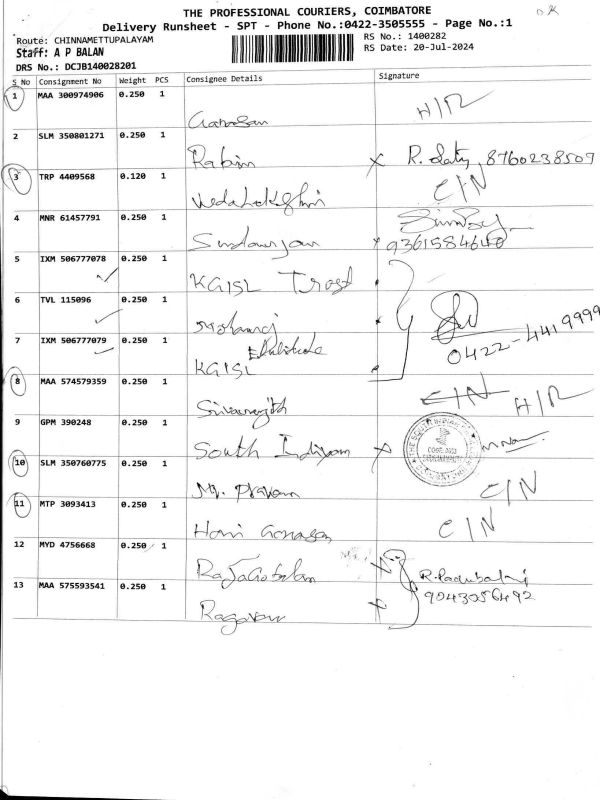 THE PROFESSIONAL COURIERS, COIMBATORE
OK
Delivery Runsheet - SPT - Phone No.:0422-3505555 - Page No.:1
Route: CHINNAMETTUPALAYAM
RS No.: 1400282
Staff: A P BALAN
RS Date: 20-Jul-2024
DRS No.: DCJB140028201
S No Consignment No Weight PCS Consignee Details Signature
1 MAA 300974906 0.250 1 H/R
2 SLM 350801271 0.250 1 Rabin R. 8760238509
3 TRP 4409568 0.120 1 C/N
4 MNR 61457791 0.250 1 9361584640
5 IXM 506777078 0.250 1 KGISL Trust
6 TVL 115096 0.250 1
0422-4419999
7 IXM 506777079 0.250 1 KGISL
8 MAA 574579359 0.250 1 C/N H/R
9 GPM 390248 0.250 1 South Indiyan
10 SLM 350760775 0.250 1 Mr. Pravam C/N
11 MTP 3093413 0.250 1 Hari C/N
12 MYD 4756668 0.250 1 RaJaGobalan
9043056492
13 MAA 575593541 0.250 1 Ragavan